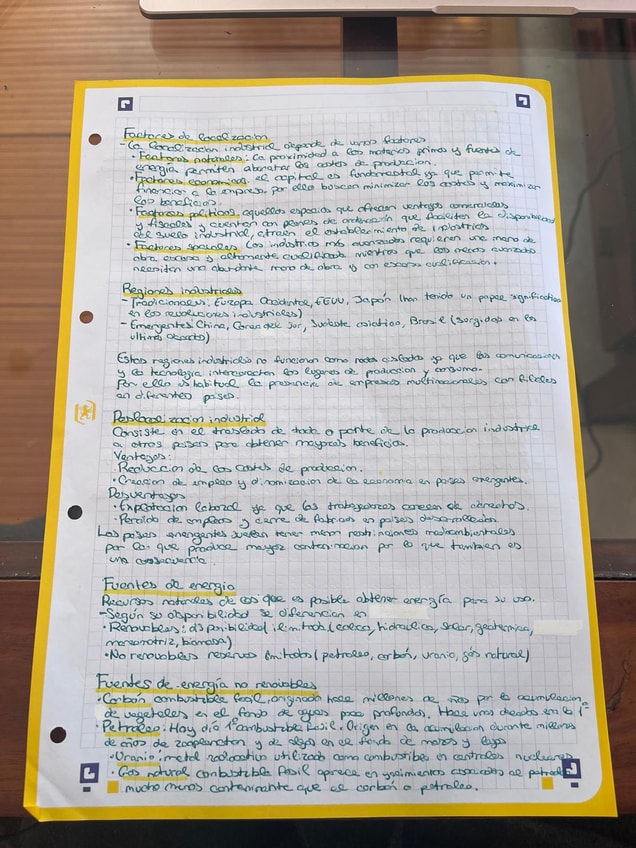 Factores de localización
- La localización industrial depende de varios factores
· Factores naturales: la proximidad a las materias primas y fuentes de
energía permiten abaratar los costes de producción.
· Factores económicos, el capital es fundamental ya que permite
financiar a la empresa por ello buscan minimizar los costes y maximizar
los beneficios.
· Factores políticos, aquellos espacios que ofrecen ventajas comerciales
y fiscales y cuentan con planes de ordenación que faciliten la disponibilidad
del suelo industrial, atraen el establecimiento de industrias
· Factores sociales Las industrias más avanzadas requieren una mano de
obra escasa y altamente cualificada mientras que las menos avanzadas
necesitan una abundante mano de obra y con escasa cualificación.
Regiones industriales
- Tradicionales: Europa Occidental, EEUU, Japón (han tenido un papel significativo
en las revoluciones industriales)
- Emergentes China, Corea del Sur, Sudeste asiático, Brasil (surgidas en las
últimas décadas)
Estas regiones industriales no funcionan como nodos aislados ya que las comunicaciones
y la tecnología interconectan los lugares de producción y consumo.
Por ello es habitual la presencia de empresas multinacionales con filiales
en diferentes países.
Deslocalización industrial
Consiste en el traslado de toda o parte de la producción industrial
a otros países para obtener mayores beneficios.
Ventajas:
· Reducción de los costes de producción.
· Creación de empleo y dinamización de la economía en países emergentes.
Desventajas
· Explotación laboral ya que los trabajadores carecen de derechos.
· Pérdida de empleos y cierre de fábricas en países desarrollados
Los países emergentes suelen tener menos restricciones medioambientales
por lo que produce mayor contaminación por lo que también es
una consecuencia.
Fuentes de energía
Recursos naturales de los que es posible obtener energía para su uso.
- Según su disponibilidad se diferencian en
· Renovables: disponibilidad ilimitada (eólica, hidráulica, solar, geotérmica,
mareomotriz, biomasa)
· No renovables reservas limitadas (petróleo, carbón, uranio, gas natural)
Fuentes de energía no renovables
· Carbón combustible fósil, originado hace millones de años por la acumulación
de vegetales en el fondo de aguas poco profundas. Hace unas décadas era la 1ª
· Petróleo: Hoy día 1º combustible fósil. Origen en la acumulación durante millones
de años de zooplancton y de algas en el fondo de mares y lagos
· Uranio: metal radioactivo utilizado como combustibles en centrales nucleares
· Gas natural combustible fósil aparece en yacimientos asociados al petróleo
mucho menos contaminante que el carbón o petróleo.